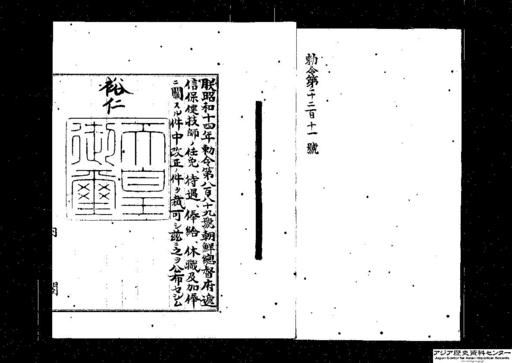 勅令第三百十一號
朕昭和十四年勅令第八百八十九號朝鮮總督府遞
信保健技師ノ任免、待遇、俸給、休職及加俸
ニ關スル件中改正ノ件ヲ裁可シ茲ニ之ヲ公布セシム
裕仁
天皇
御璽
内閣
アジア歴史資料センター
Japan Center for Asian Historical Records